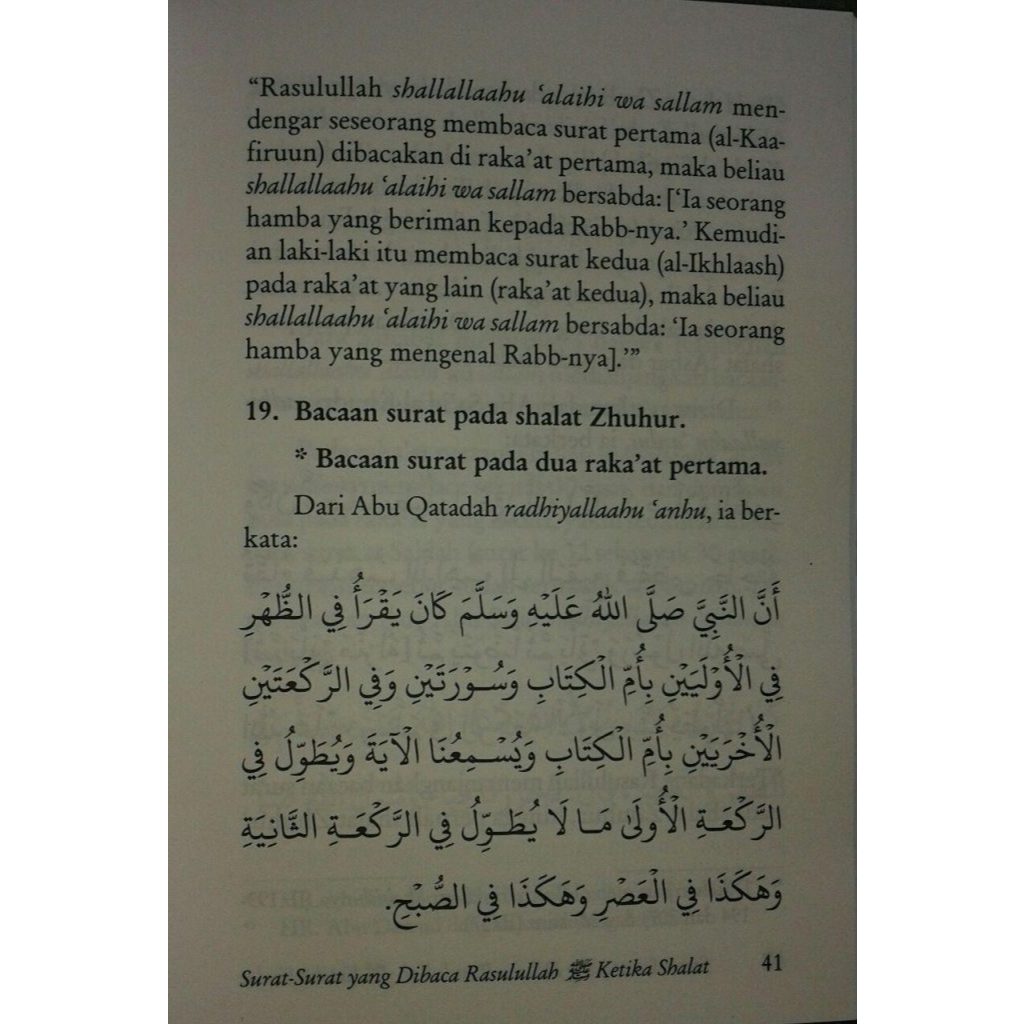 “Rasulullah shallallaahu ‘alaihi wa sallam men-
dengar seseorang membaca surat pertama (al-Kaa-
firuun) dibacakan di raka’at pertama, maka beliau
shallallaahu ‘alaihi wa sallam bersabda: [‘Ia seorang
hamba yang beriman kepada Rabb-nya.’ Kemudi-
an laki-laki itu membaca surat kedua (al-Ikhlaash)
pada raka’at yang lain (raka’at kedua), maka beliau
shallallaahu ‘alaihi wa sallam bersabda: ‘Ia seorang
hamba yang mengenal Rabb-nya].’”
19. Bacaan surat pada shalat Zhuhur.
* Bacaan surat pada dua raka’at pertama.
Dari Abu Qatadah radhiyallaahu ‘anhu, ia ber-
kata:
أَنَّ النَّبِيَّ صَلَّى اللهُ عَلَيْهِ وَسَلَّمَ كَانَ يَقْرَأُ فِي الظُّهْرِ
فِي الْأُوْلَيَيْنِ بِأُمِّ الْكِتَابِ وَسُوْرَتَيْنِ وَفِي الرَّكْعَتَيْنِ
الْأُخْرَيَيْنِ بِأُمِّ الْكِتَابِ وَيُسْمِعُنَا الْآيَةَ وَيُطَوِّلُ فِي
الرَّكْعَةِ الْأُولَىٰ مَا لَا يُطَوِّلُ فِي الرَّكْعَةِ الثَّانِيَةِ
وَهَكَذَا فِي الْعَصْرِ وَهَكَذَا فِي الصُّبْحِ.
Surat-Surat yang Dibaca Rasulullah ﷺ Ketika Shalat 41